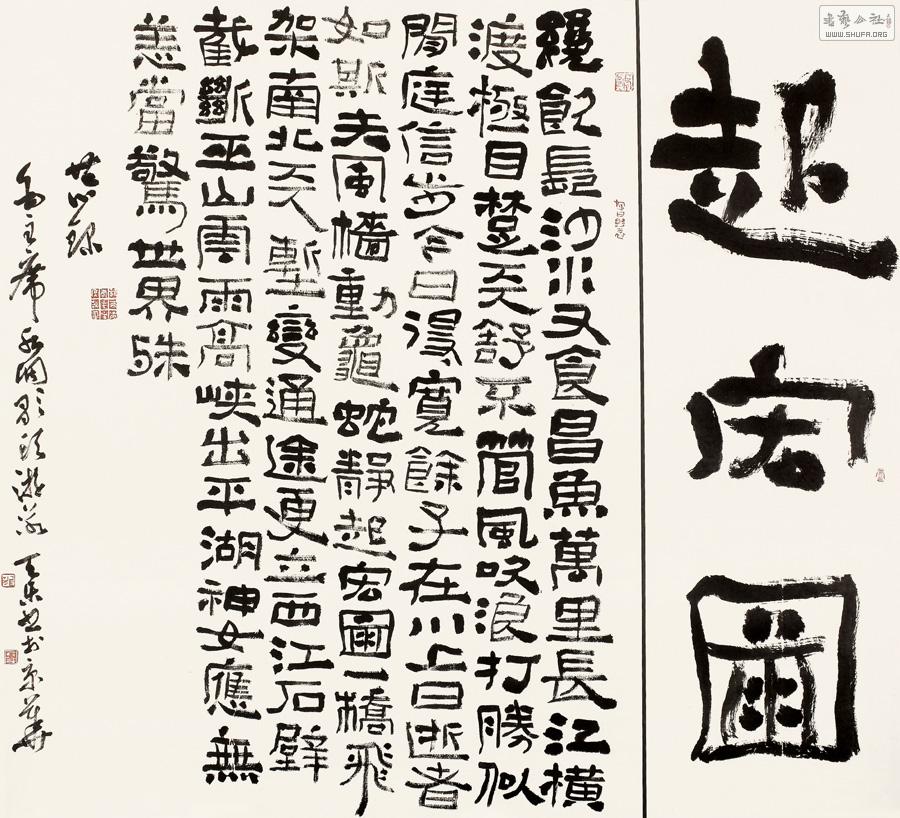 起宏圖
纔飲長沙水又食昌魚萬里長江橫
渡極目楚天舒不管風吹浪打勝似
閒庭信步今日得寬餘子在川上曰逝者
如斯夫風檣動龜蛇靜起宏圖一橋飛
架南北天塹變通途更立西江石壁
截斷巫山雲雨高峽出平湖神女應無
恙當驚世界殊
毛主席水調歌頭游泳 書於京華
書藝公社
WWW.SHUFA.ORG